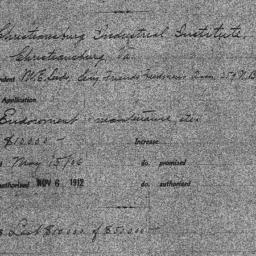 Christiansburg Industrial Institute,
Christiansburg, Va.
dent M.E. Leeds, Friends Freedmen's Assn. 259 N. B
Application
Endorsement - maintenance etc
$10000 - Increase
May 15/06 do. promised
authorised NOV 6 1912 do. authorised
Last $10000 of $50000 -